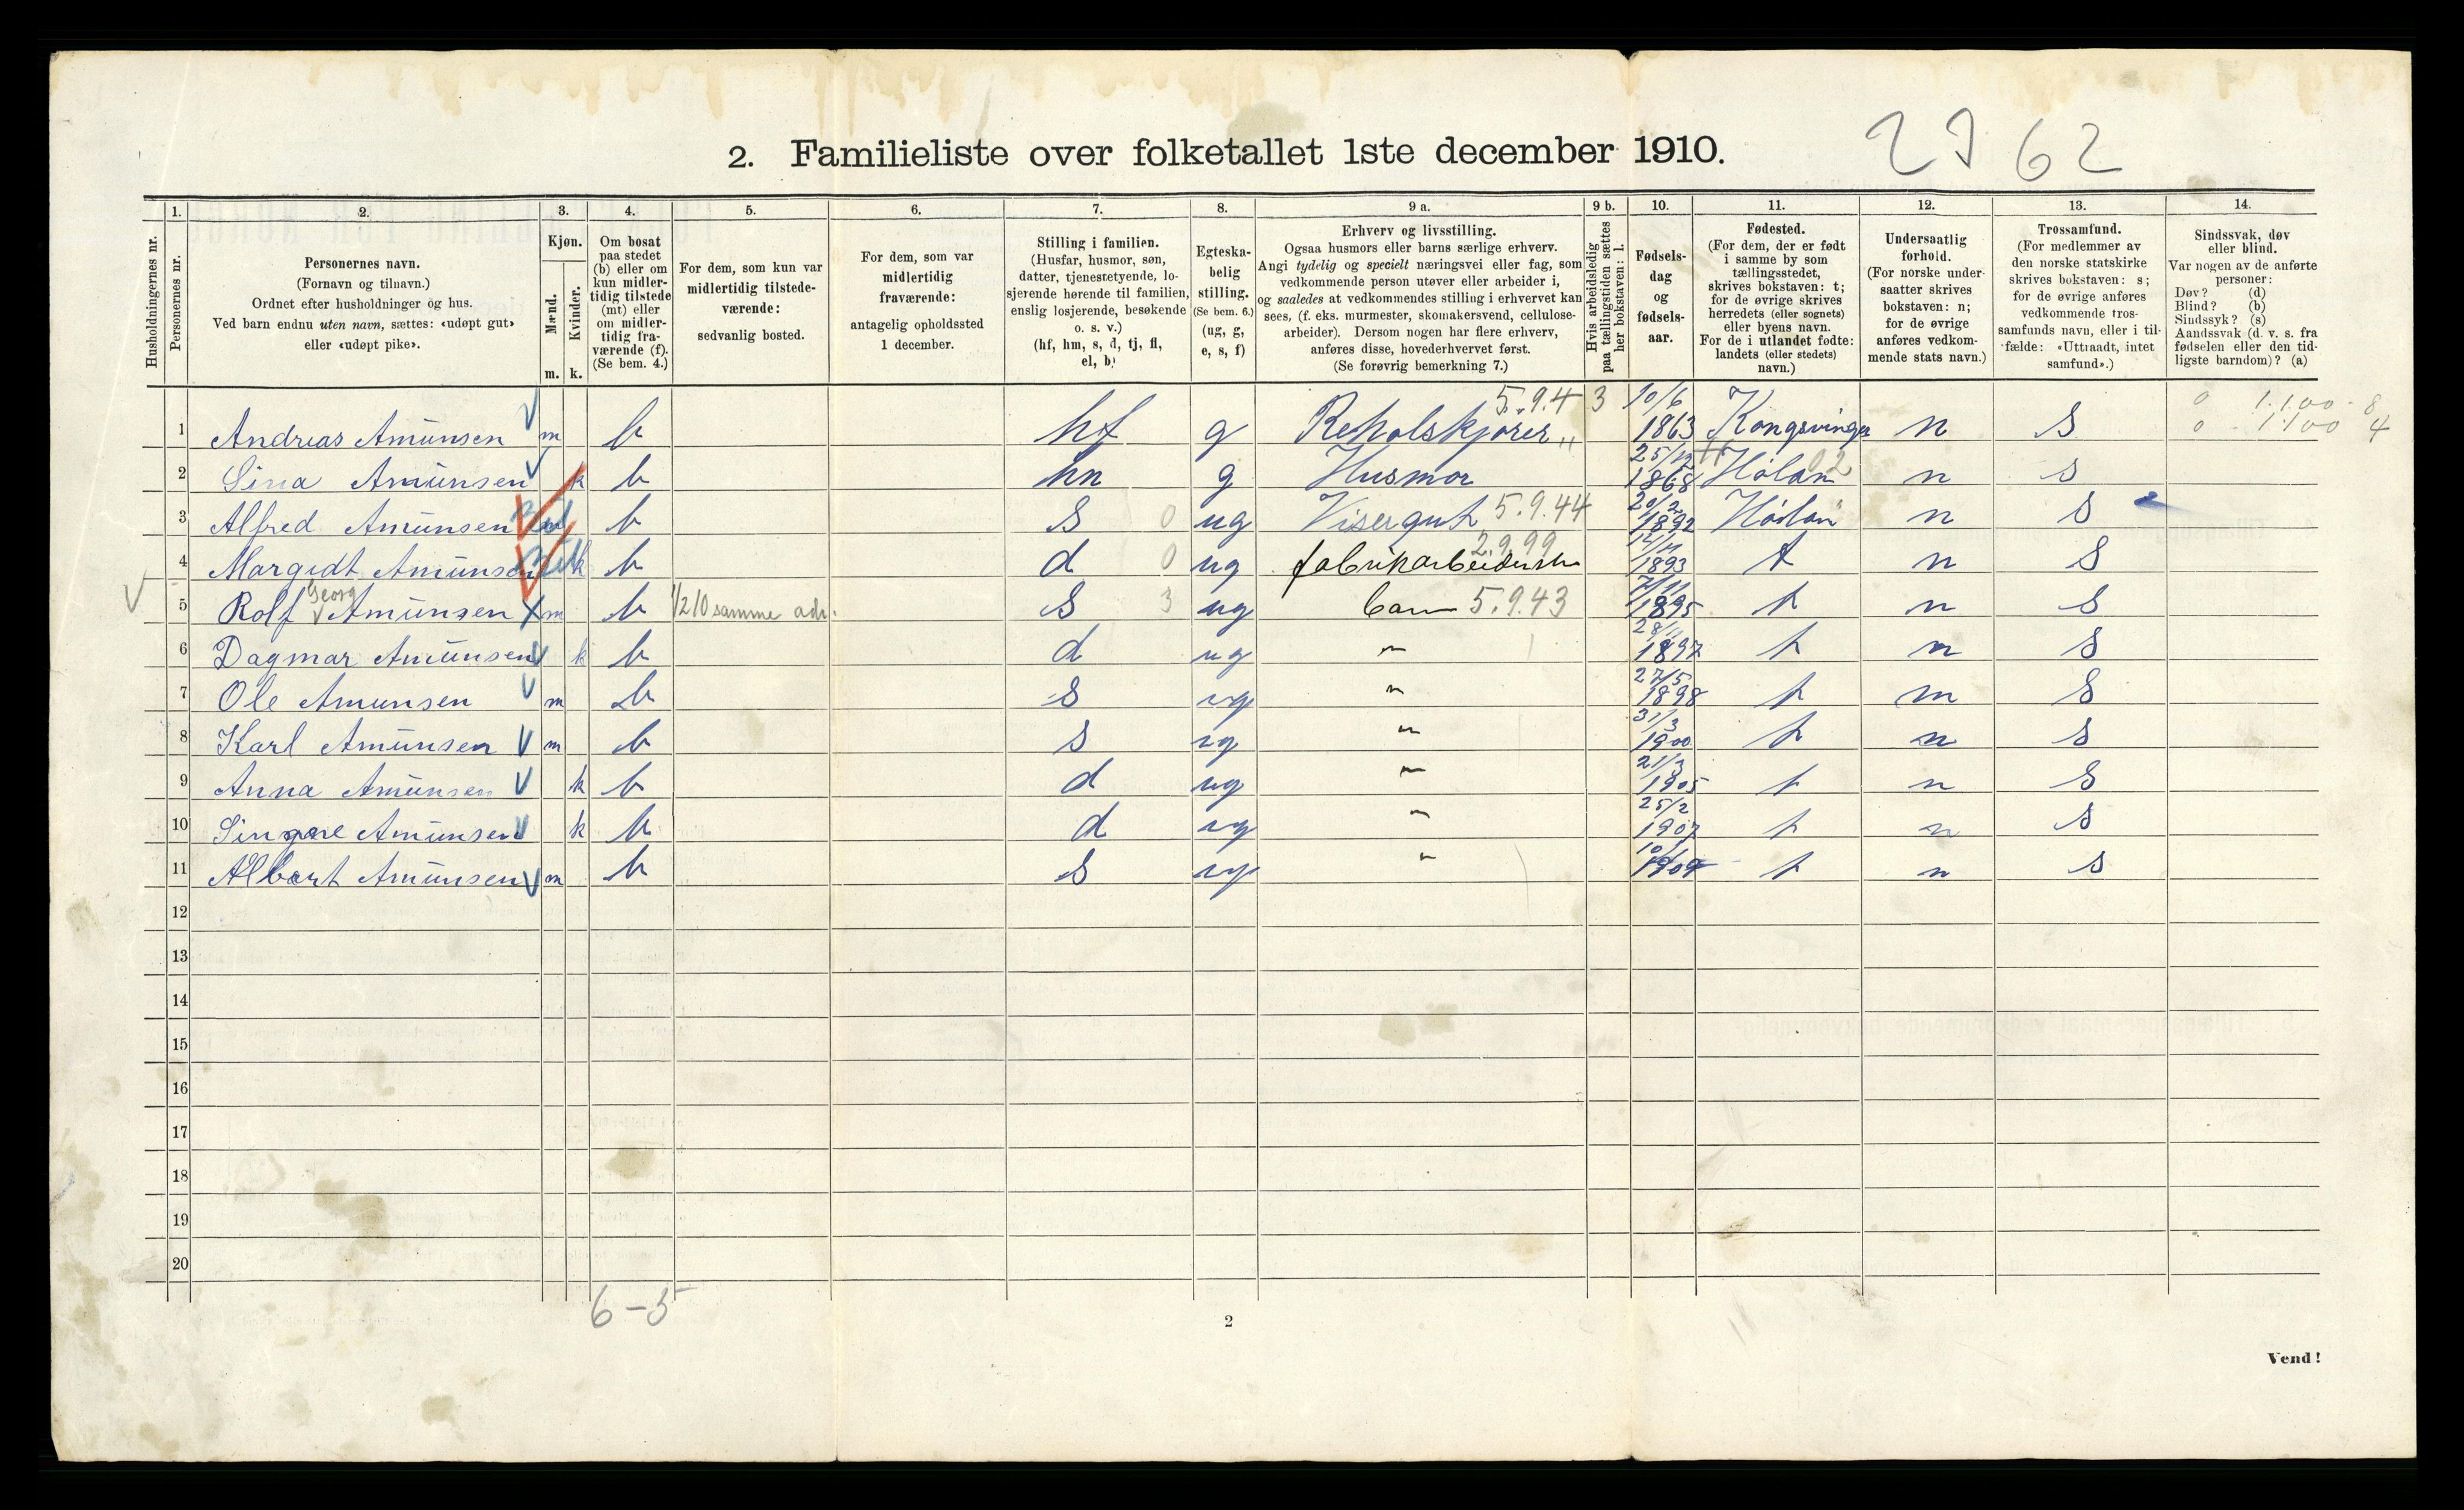 2. Familieliste over folketallet 1ste december 1910.
2762
1. 2. 3. 4. 5. 6. 7. 8. 9 a. 9 b. 10. 11. 12. 13. 14.
Husholdningernes nr.
Personernes nr.
Personernes navn.
(Fornavn og tilnavn.)
Ordnet efter husholdninger og hus.
Ved barn endnu uten navn, sættes: «udøpt gut»
eller «udøpt pike».
Kjøn.
Mænd.
Kvinder.
m. k.
Om bosat
paa stedet
(b) eller om
kun midler-
tidig tilstede
(mt) eller
om midler-
tidig fra-
værende (f).
(Se bem. 4.)
For dem, som kun var
midlertidig tilstede-
værende:
sedvanlig bosted.
For dem, som var
midlertidig
fraværende:
antagelig opholdssted
1 december.
Stilling i familien.
(Husfar, husmor, søn,
datter, tjenestetyende, lo-
sjerende hørende til familien,
enslig losjerende, besøkende
o. s. v.)
(hf, hm, s, d, tj, fl,
el, b)
Egteska-
belig
stilling.
(Se bem. 6.)
(ug, g,
e, s, f)
Erhverv og livsstilling.
Ogsaa husmors eller barns særlige erhverv.
Angi tydelig og specielt næringsvei eller fag, som
vedkommende person utøver eller arbeider i,
og saaledes at vedkommendes stilling i erhvervet kan
sees, (f. eks. murmester, skomakersvend, cellulose-
arbeider). Dersom nogen har flere erhverv,
anføres disse, hovederhvervet først.
(Se forøvrig bemerkning 7.)
Hvis arbeidsledig
paa tællingstiden sættes
her bokstaven: l.
Fødsels-
dag
og
fødsels-
aar.
Fødested.
(For dem, der er født
i samme by som
tællingsstedet,
skrives bokstaven: t;
for de øvrige skrives
herredets (eller sognets)
eller byens navn.
For de i utlandet fødte:
landets (eller stedets)
navn.)
Undersaatlig
forhold.
(For norske under-
saatter skrives
bokstaven: n;
for de øvrige
anføres vedkom-
mende stats navn.)
Trossamfund.
(For medlemmer av
den norske statskirke
skrives bokstaven: s;
for de øvrige anføres
vedkommende tros-
samfunds navn, eller i til-
fælde: «Uttraadt, intet
samfund».)
Sindssvak, døv
eller blind.
Var nogen av de anførte
personer:
Døv? (d)
Blind? (b)
Sindssyk? (s)
Aandssvak (d. v. s. fra
fødselen eller den tid-
ligste barndom)? (a)
1 Andreas Amünsen m b hf g 5.9.4 3 10/6 1863 Kongsvinger n s
0 1.100 8
0 1100 4
2 Sina Amünsen k b hm g Husmor 25/12 1868 Høland n s
3 Alfred Amünsen m b s 0 ug Visergut 5.9.44 20/2 1892 Høland n s
4 Margidt Amünsen k b d 0 ug fabrikarbeiderske 2.9.99 12/11 1893 t n s
5 Rolf Georg Amünsen m b 1/2 10 samme adr. s 3 ug barn 5.9.43 7/11 1895 t n s
6 Dagmar Amünsen k b d ug " 28/11 1897 t n s
7 Ole Amunsen m b s ug " 27/5 1898 t n s
8 Karl Amünsen m b s ug " 31/3 1900 t n s
9 Anna Amünsen k b d ug " 21/3 1905 t n s
10 Amünsen k b d ug " 25/2 1907 t n s
11 Albert Amünsen m b s ug " 10/1 1909 t n s
12
13
14
15
16
17
18
19
20
6-5
2
Vend!